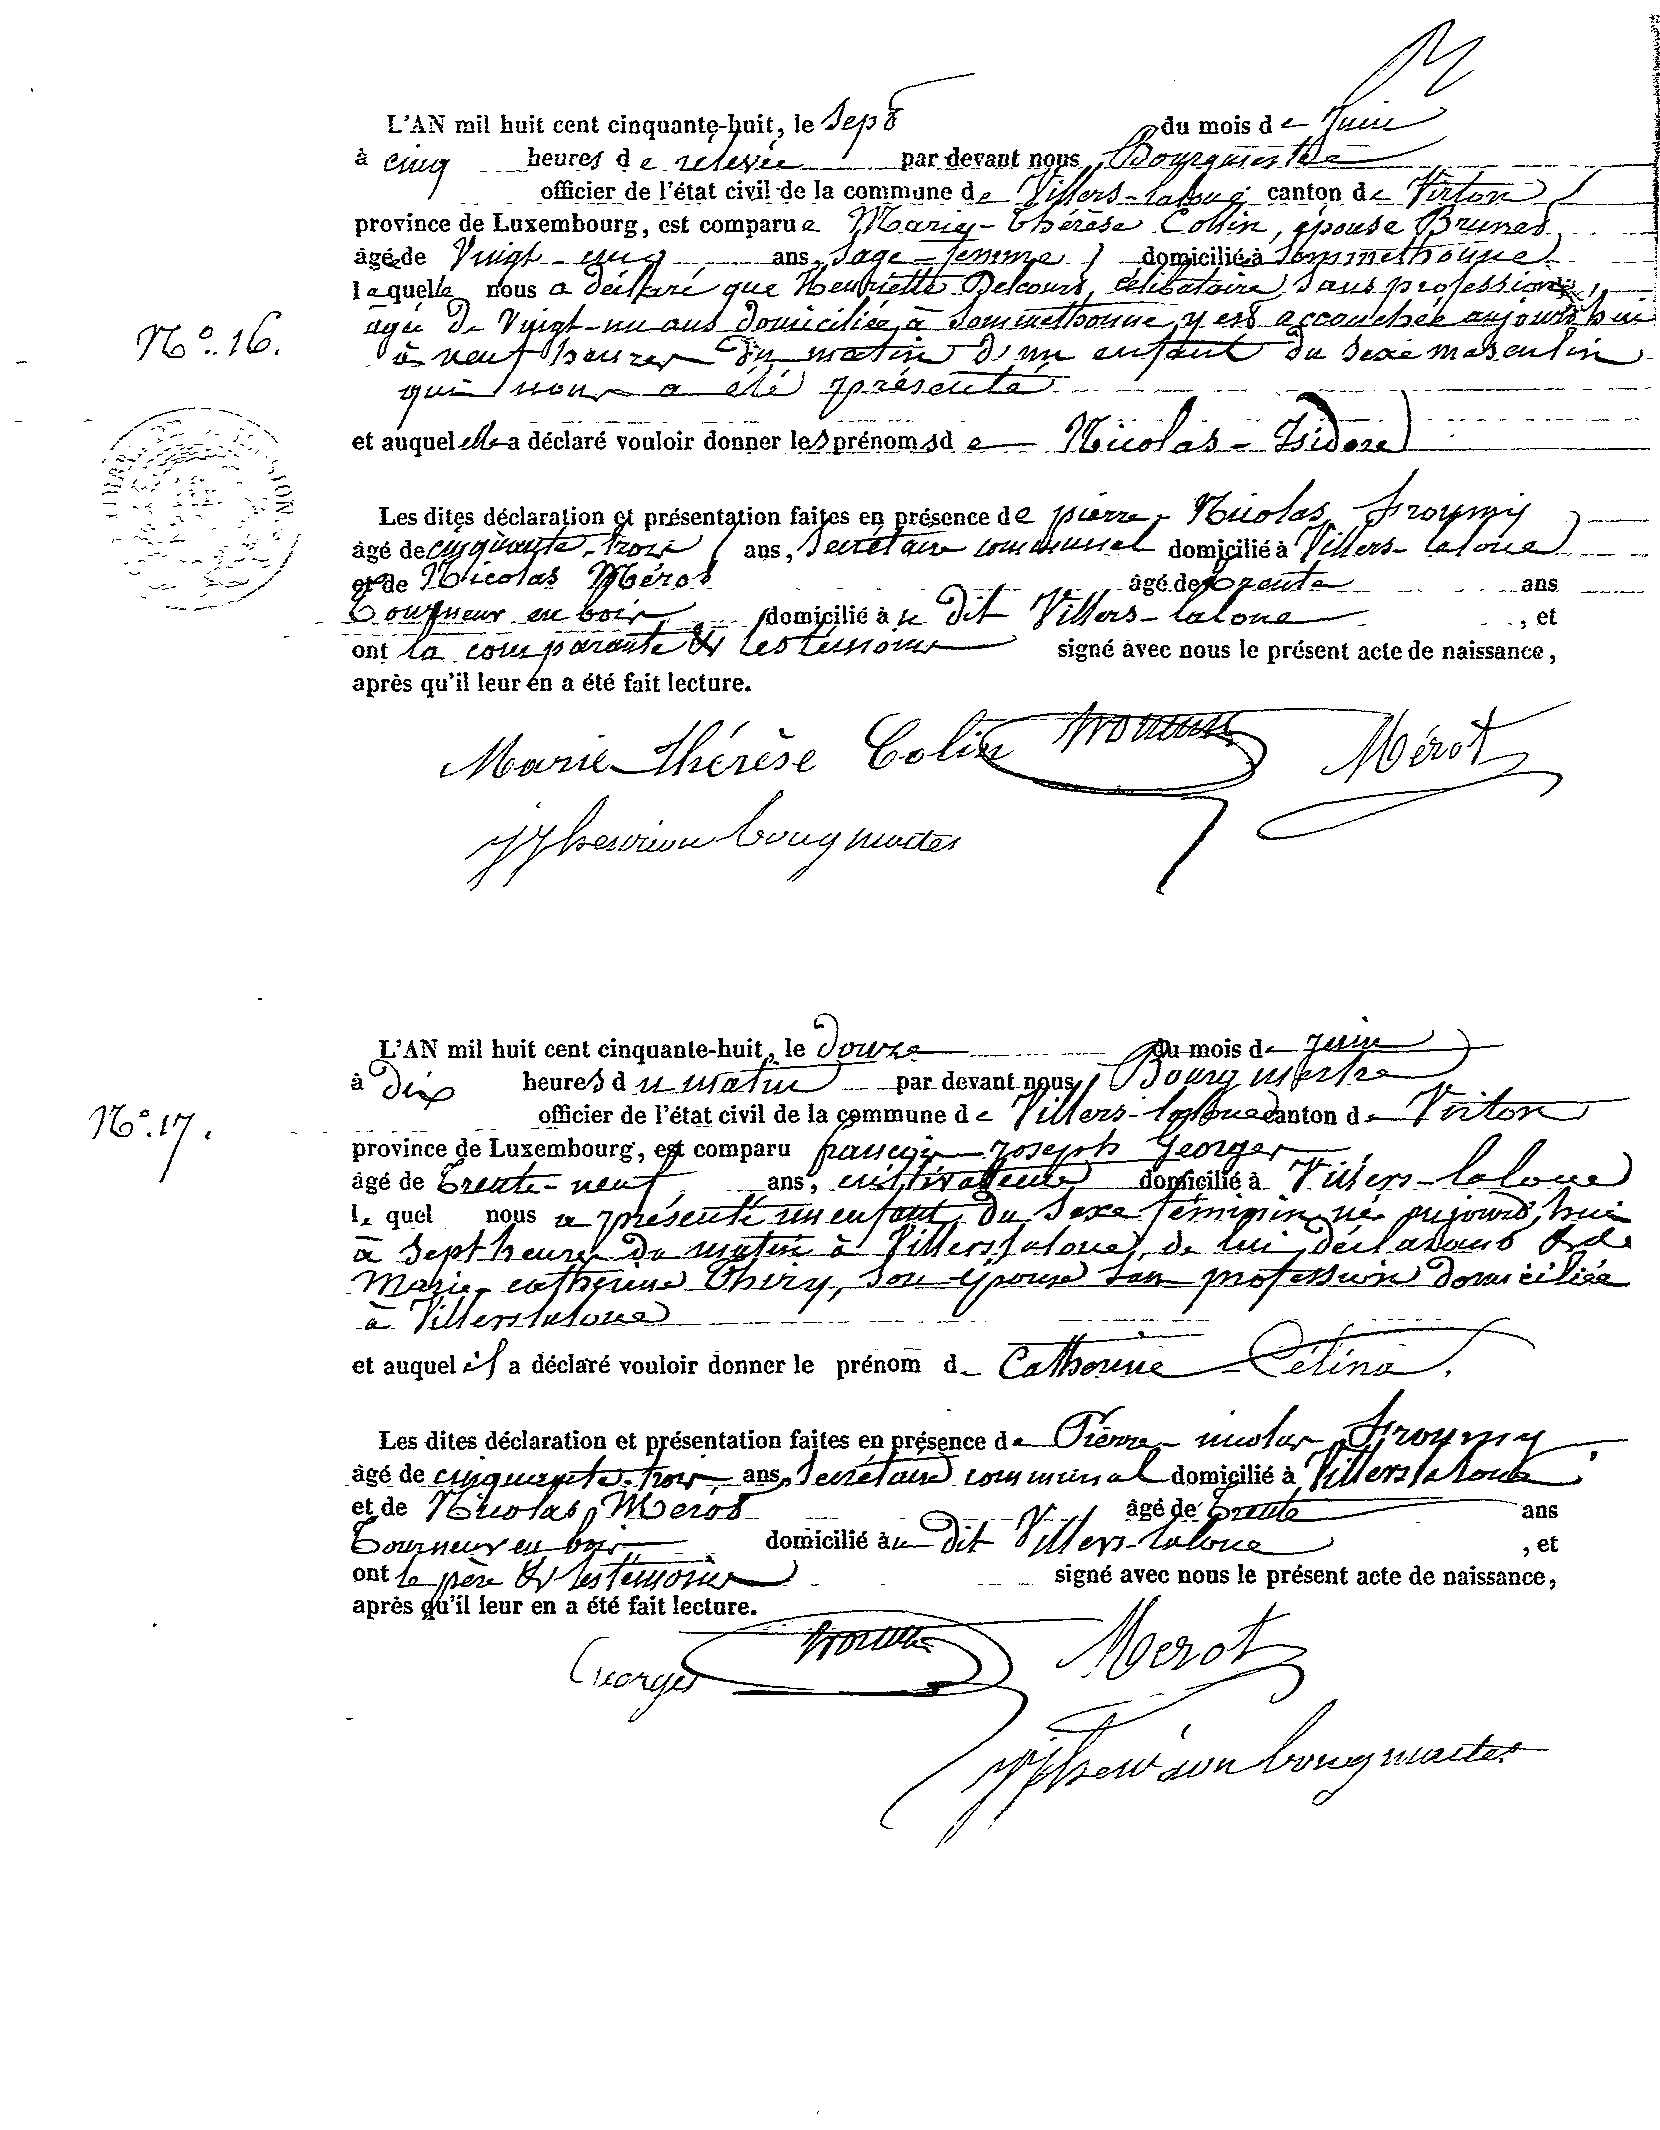 L'AN mil huit cent cinquante-huit, le Sept du mois de Juin
à cinq heures de relevée par devant nous Bourgmestre
officier de l'état civil de la commune de Villers-laloue canton de Virton
province de Luxembourg, est comparue Marie-Thérèse Collin, épouse
âgée de Vingt-cinq ans, Sage-femme domiciliée à Sommethonne
laquelle nous a déclaré que Henriette Delcourt, célibataire sans profession,
âgée de Vingt-un ans domiciliée à Sommethonne, y est accouchée aujourd'hui
N.o 16.
à neuf heures du matin d'un enfant du sexe masculin
qui nous a été présenté
et auquel elle a déclaré vouloir donner les prénoms de Nicolas-Isidore
Les dites déclaration et présentation faites en présence de pierre-Nicolas
âgé de cinquante-trois ans, Secrétaire communal domicilié à Villers-laloue
et de Nicolas Mérot âgé de trente ans
Tourneur en bois domicilié à u dit Villers-laloue , et
ont la comparante & les témoins signé avec nous le présent acte de naissance,
après qu'il leur en a été fait lecture.
Marie-thérèse Colin Mérot
bougmaitre
L'AN mil huit cent cinquante-huit, le douze du mois de Juin
à dix heures du matin par devant nous, Bourgmestre
officier de l'état civil de la commune de Villers-laloue canton de Virton
N.o 17.
province de Luxembourg, est comparu françois-Joseph Georges
âgé de Trente-neuf ans, cultivateur domicilié à Villers-laloue
lequel nous a présenté un enfant du sexe féminin né aujourd'hui
à sept heures du matin à Villerslaloue, de lui déclarant & de
Marie-catherine Thiry, son épouse sans profession domiciliée
à Villerslaloue
et auquel il a déclaré vouloir donner le prénom de Catherine-Célina.
Les dites déclaration et présentation faites en présence de Pierre-nicolas
âgé de cinquante-trois ans, Secrétaire communal domicilié à Villerslaloue
et de Nicolas Merot âgé de trente ans
Tourneur en bois domicilié à u dit Villers-laloue , et
ont le père & les témoins signé avec nous le présent acte de naissance,
après qu'il leur en a été fait lecture.
Georges Merot
bougmaitre